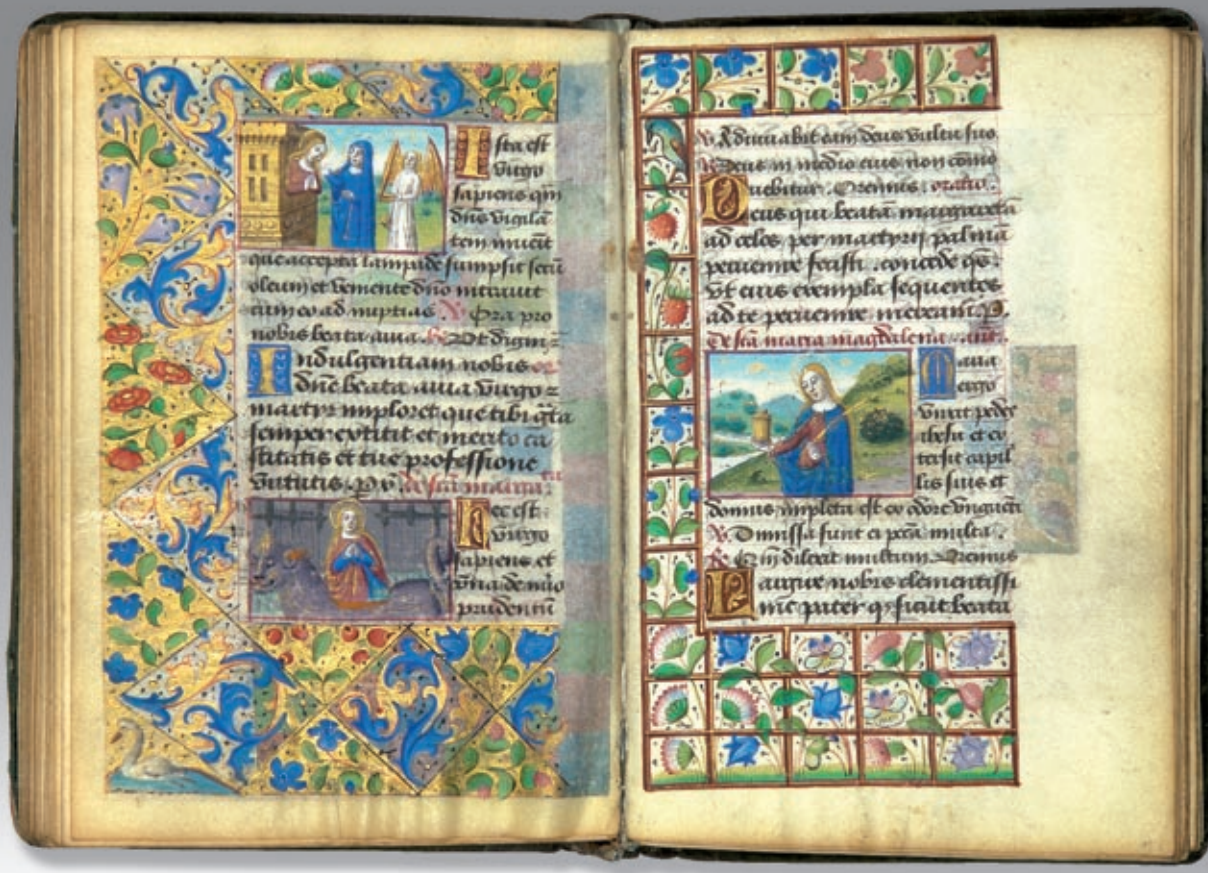 Ista est
virgo
sapiens quā
dn̄s vigilā
tem inuēit
que accepta lampade sumpsit secū
oleum et veniente dn̄o introiuit
cum eo ad nuptias V Ora pro
nobis beata auia Ut digni
Indulgentiam nobis or
dn̄e beata auia virgo
martyr imploret que tibi gr̄ta
semper extitit et merito ca
stitatis et tue professione
virtutis. P de sctā marga
Hec est
virgo
sapiens et
vna de nūo
prudentū
V Adiuuabit eam deus vultu suo
R Deus in medio eius non cōmo
uebitur. Oremus. oratio.
Deus qui beatā margaretā
ad celos per martyrij palmā
peruenire fecisti. concede qs
vt eius exempla sequentes
ad te peruenire meream. P.
De sctā maria magdalena. an.
Maria
ergo
vnxit pedes
ihesu et ex
tersit capil
lis suis et
domus impleta est ex odore vnguēti
V Dimissa sunt ei pctā multa.
R Qm̄ dilexit multum. Oremus
Largire nobis clementissi
me pater qs sicut beata